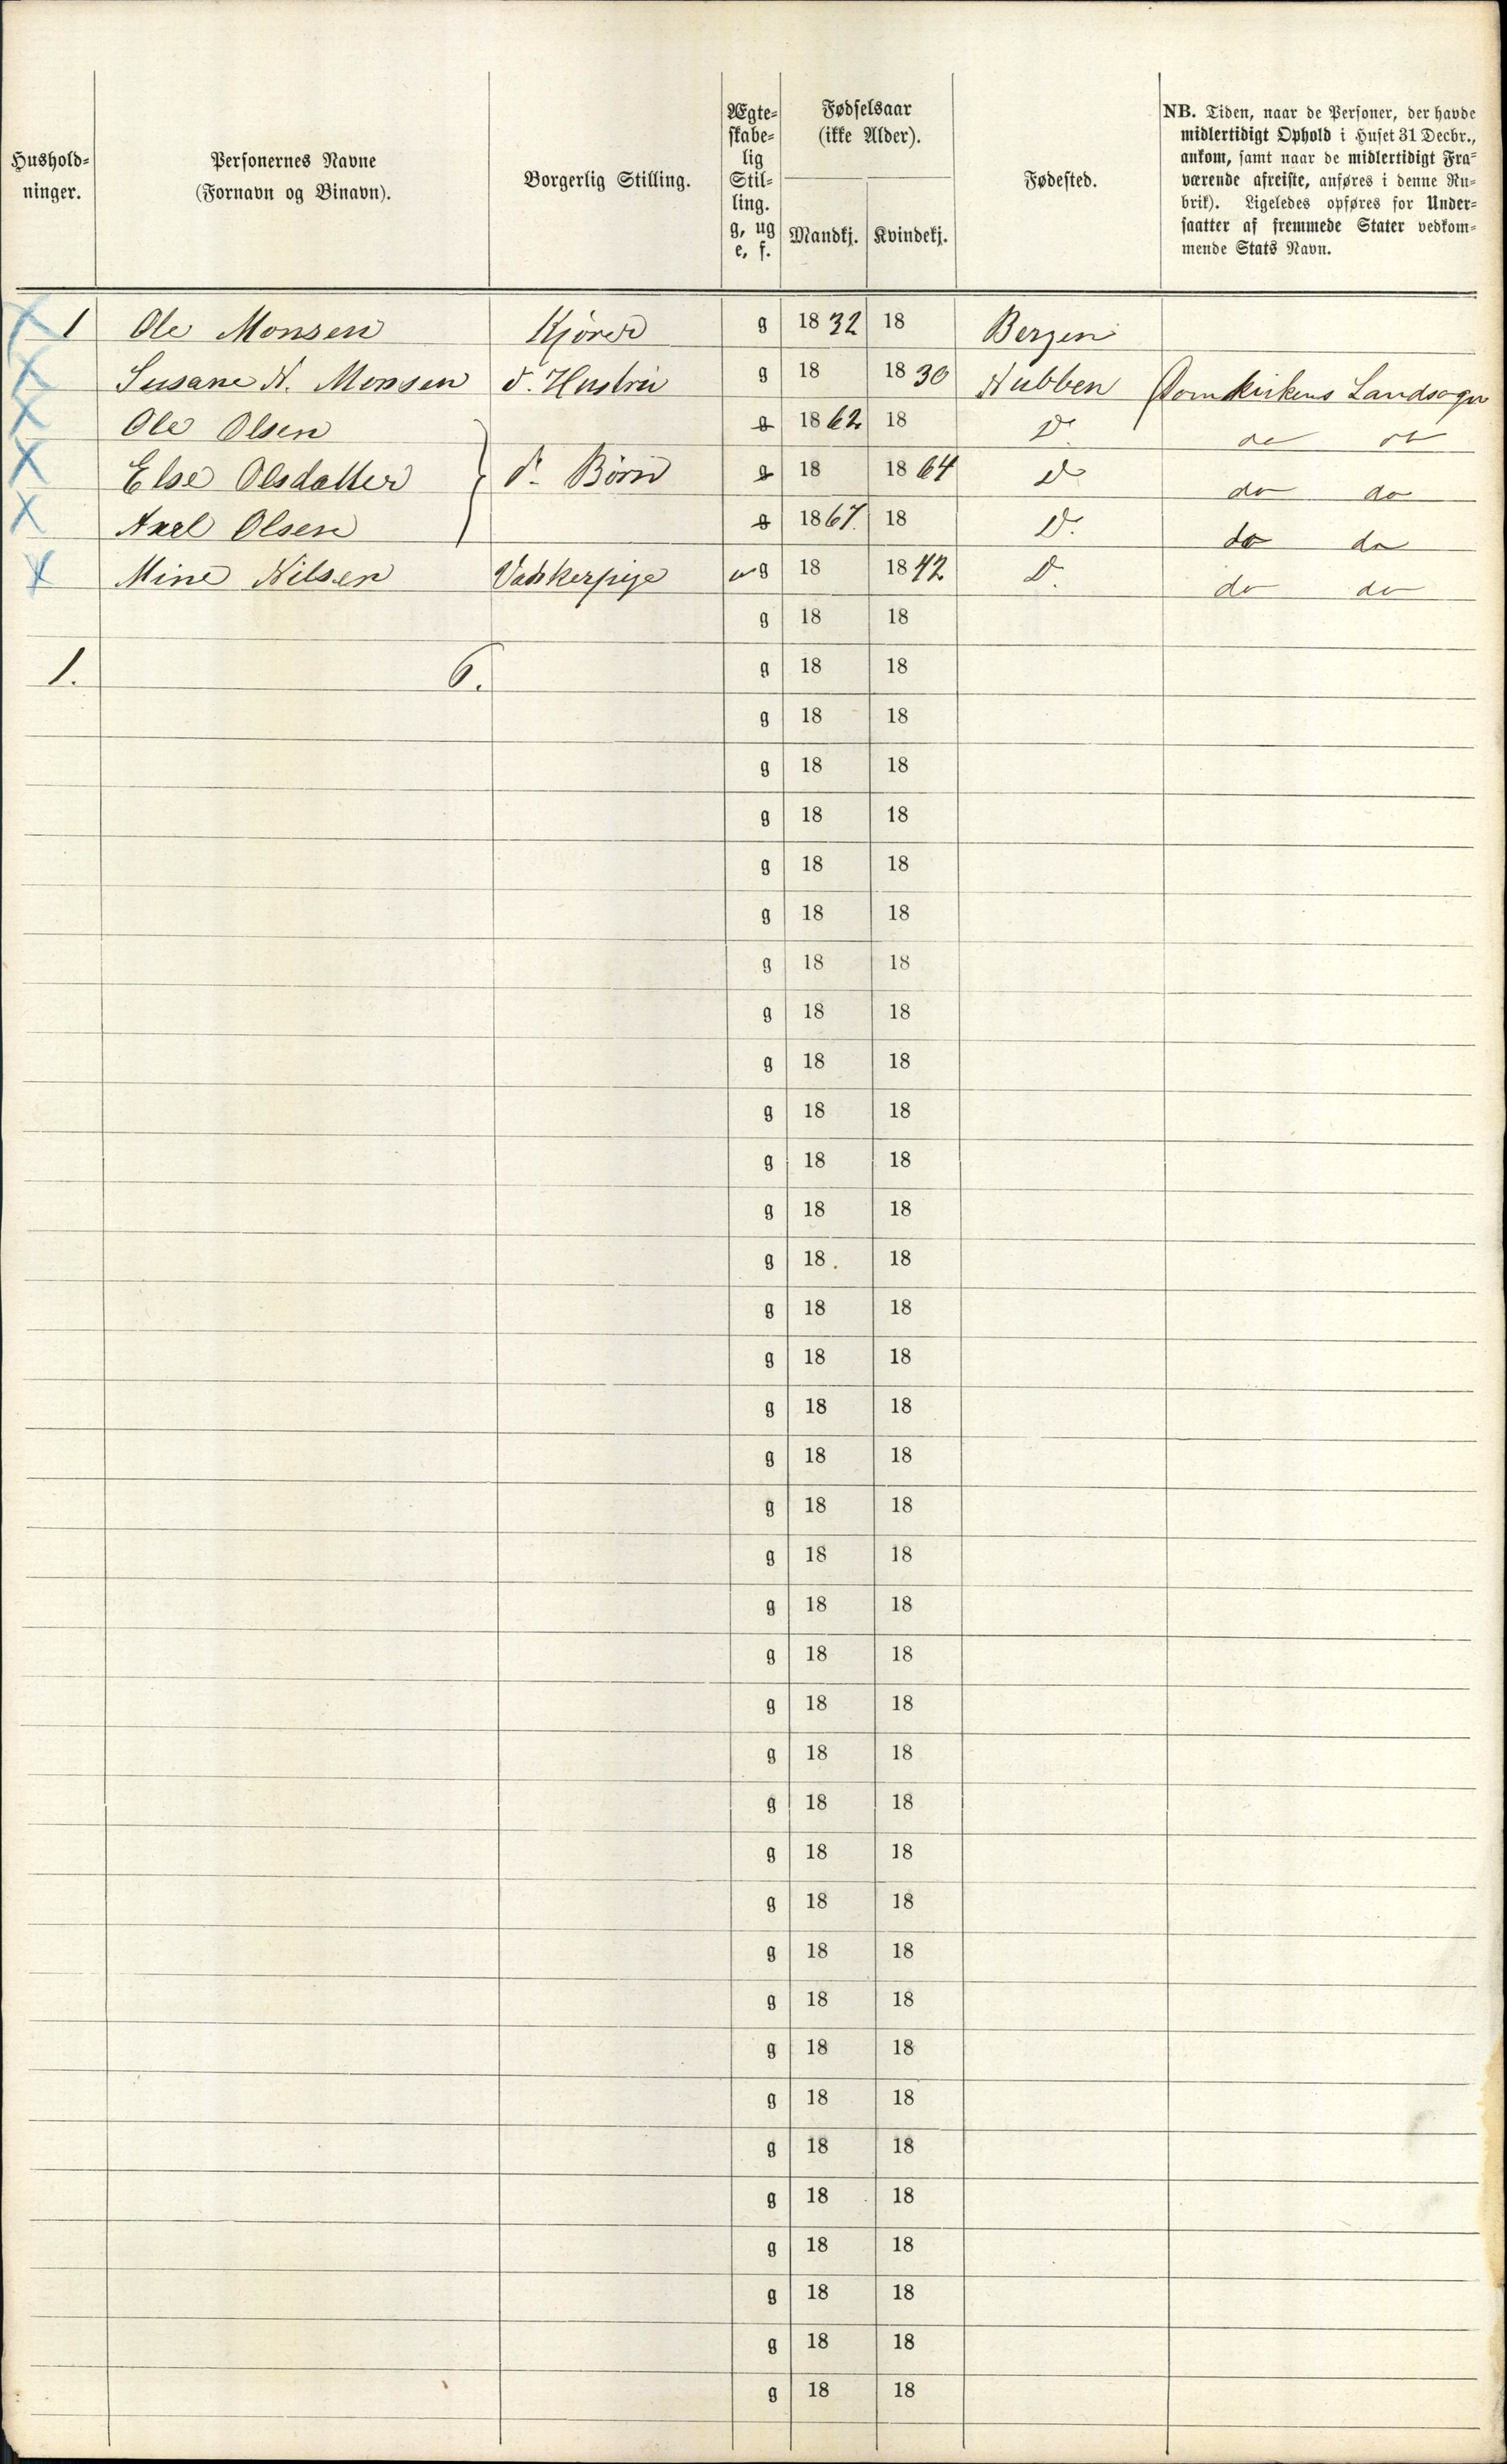 Hushold-
ninger.
Personernes Navne
(Fornavn og Binavn).
Borgerlig Stilling.
Ægte-
skabe-
lig
Stil-
ling.
g, ug
e, f.
Fødselsaar
(ikke Alder).
Mandkj. Kvindekj.
Fødested.
NB. Tiden, naar de Personer, der havde
midlertidigt Ophold i Huset 31 Decbr.,
ankom, samt naar de midlertidigt Fra-
værende afreiste, anføres i denne Ru-
brik). Ligeledes opføres for Under-
saatter af fremmede Stater vedkom-
mende Stats Navn.
1 Ole Monsen Kjører g 1832 18 Bergen
Susane N. Monsen d. Hustru g 18 1830 Nubben Domkirkens Landsogn
Ole Olsen g 1862 18 D. do do
Else Olsdatter d. Børn g 18 1864 D do do
Axel Olsen g 1867. 18 D. do do
Mine Nilsen Vaskerpige ug 18 1842 D. do do
g 18 18
1. 6. g 18 18
g 18 18
g 18 18
g 18 18
g 18 18
g 18 18
g 18 18
g 18 18
g 18 18
g 18 18
g 18 18
g 18 18
g 18 18
g 18 18
g 18 18
g 18 18
g 18 18
g 18 18
g 18 18
g 18 18
g 18 18
g 18 18
g 18 18
g 18 18
g 18 18
g 18 18
g 18 18
g 18 18
g 18 18
g 18 18
g 18 18
g 18 18
g 18 18
g 18 18
g 18 18
g 18 18